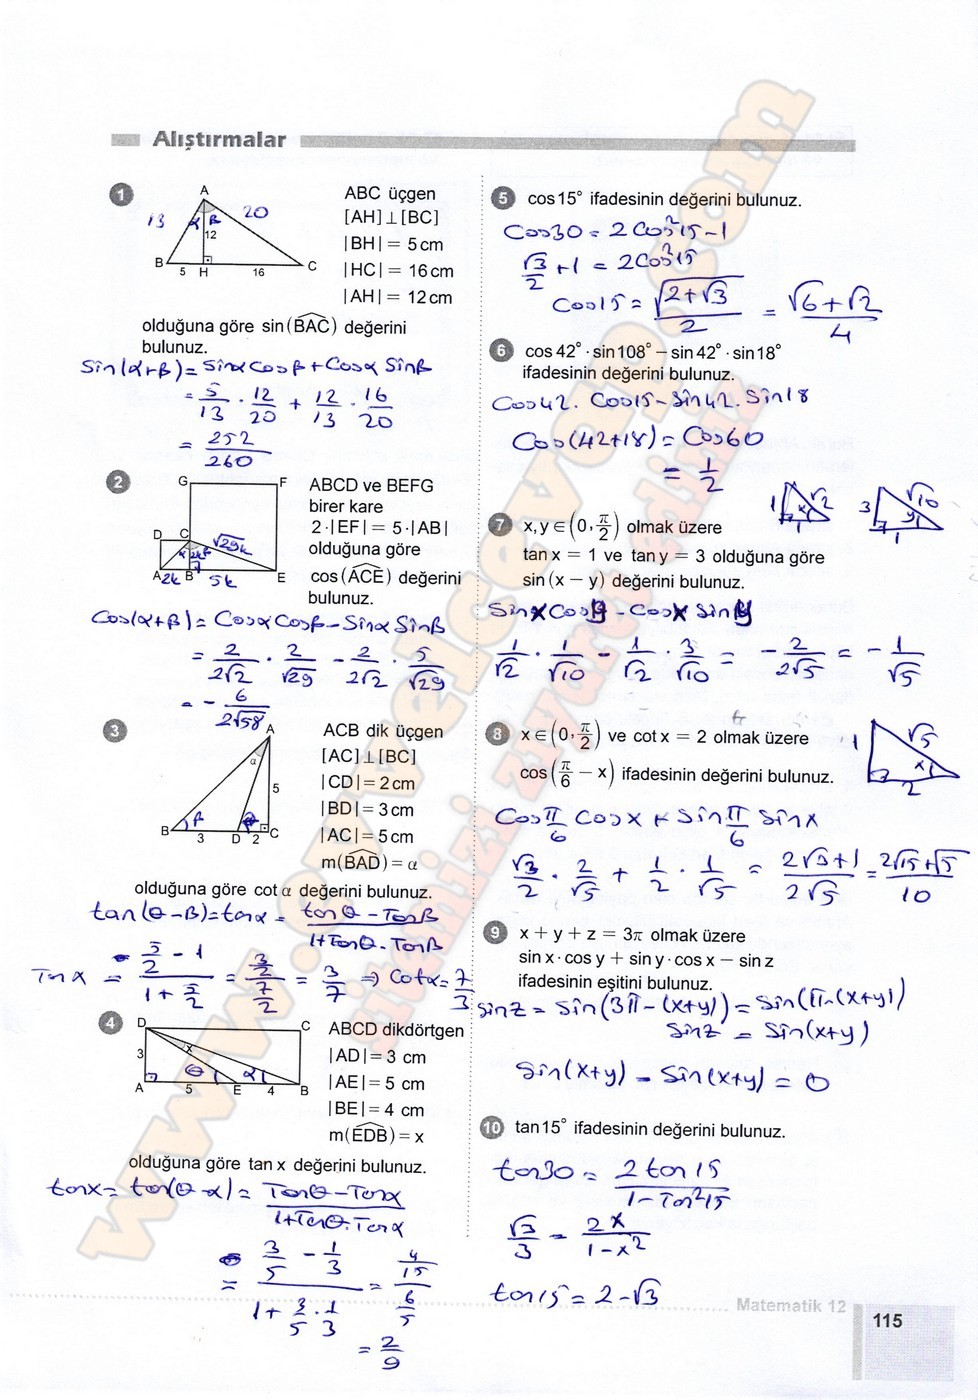 Alıştırmalar
1
A
13
20
α β
12
B
5 H 16
C
ABC üçgen
[AH] ⊥ [BC]
|BH| = 5 cm
|HC| = 16 cm
|AH| = 12 cm
olduğuna göre sin(BAC) değerini
bulunuz.
Sin(α+β) = Sinα Cosβ + Cosα Sinβ
= 5/13 · 12/20 + 12/13 · 16/20
= 252/260
2
G F
D C
√29k
α 2k β
A 2k B 5k E
ABCD ve BEFG
birer kare
2·|EF| = 5·|AB|
olduğuna göre
cos(ACE) değerini
bulunuz.
Cos(α+β) = Cosα Cosβ - Sinα Sinβ
= 2/2√2 · 2/√29 - 2/2√2 · 5/√29
= - 6/2√58
3
A
α
5
β θ
B 3 D 2 C
ACB dik üçgen
[AC] ⊥ [BC]
|CD| = 2 cm
|BD| = 3 cm
|AC| = 5 cm
m(BAD) = α
olduğuna göre cot α değerini bulunuz.
tan(θ-β) = tanα = tanθ - Tanβ / 1+Tanθ·Tanβ
Tanα = 5/2 - 1 / 1 + 5/2 = 3/2 / 7/2 = 3/7 ⇒ Cotα = 7/3
4
D C
x
3
θ α
A 5 E 4 B
ABCD dikdörtgen
|AD| = 3 cm
|AE| = 5 cm
|BE| = 4 cm
m(EDB) = x
olduğuna göre tan x değerini bulunuz.
tanx = tan(θ-α) = Tanθ - Tanα / 1+Tanθ.Tanα
= 3/5 - 1/3 / 1 + 3/5 · 1/3 = 4/15 / 6/5
= 2/9
5
cos 15° ifadesinin değerini bulunuz.
Cos30 = 2Cos²15 - 1
√3/2 + 1 = 2Cos²15
Cos15 = √2+√3 / 2 = √6+√2 / 4
6
cos 42° · sin 108° – sin 42° · sin 18°
ifadesinin değerini bulunuz.
Cos42. Cos15 - Sin42. Sin18
Cos(42+18) = Cos60
= 1/2
7
x, y ∈ (0, π/2) olmak üzere
tan x = 1 ve tan y = 3 olduğuna göre
sin (x – y) değerini bulunuz.
1 √2 x 1
3 √10 y 1
Sinx Cosy - Cosx Siny
1/√2 · 1/√10 - 1/√2 · 3/√10 = - 2/2√5 = - 1/√5
8
x ∈ (0, π/2) ve cot x = 2 olmak üzere
cos (π/6 – x) ifadesinin değerini bulunuz.
1 √5 x 2
Cos π/6 Cosx + Sin π/6 Sinx
√3/2 · 2/√5 + 1/2 · 1/√5 = 2√3+1 / 2√5 = 2√15+√5 / 10
9
x + y + z = 3π olmak üzere
sin x · cos y + sin y · cos x – sin z
ifadesinin eşitini bulunuz.
Sinz = Sin(3π-(x+y)) = Sin(π-(x+y))
Sinz = Sin(x+y)
Sin(x+y) - Sin(x+y) = 0
10
tan 15° ifadesinin değerini bulunuz.
tan30 = 2tan15 / 1-Tan²15
√3/3 = 2x / 1-x²
tan15 = 2-√3
Matematik 12
115
www.evvelcevap.com
sitemizi ziyaret ediniz